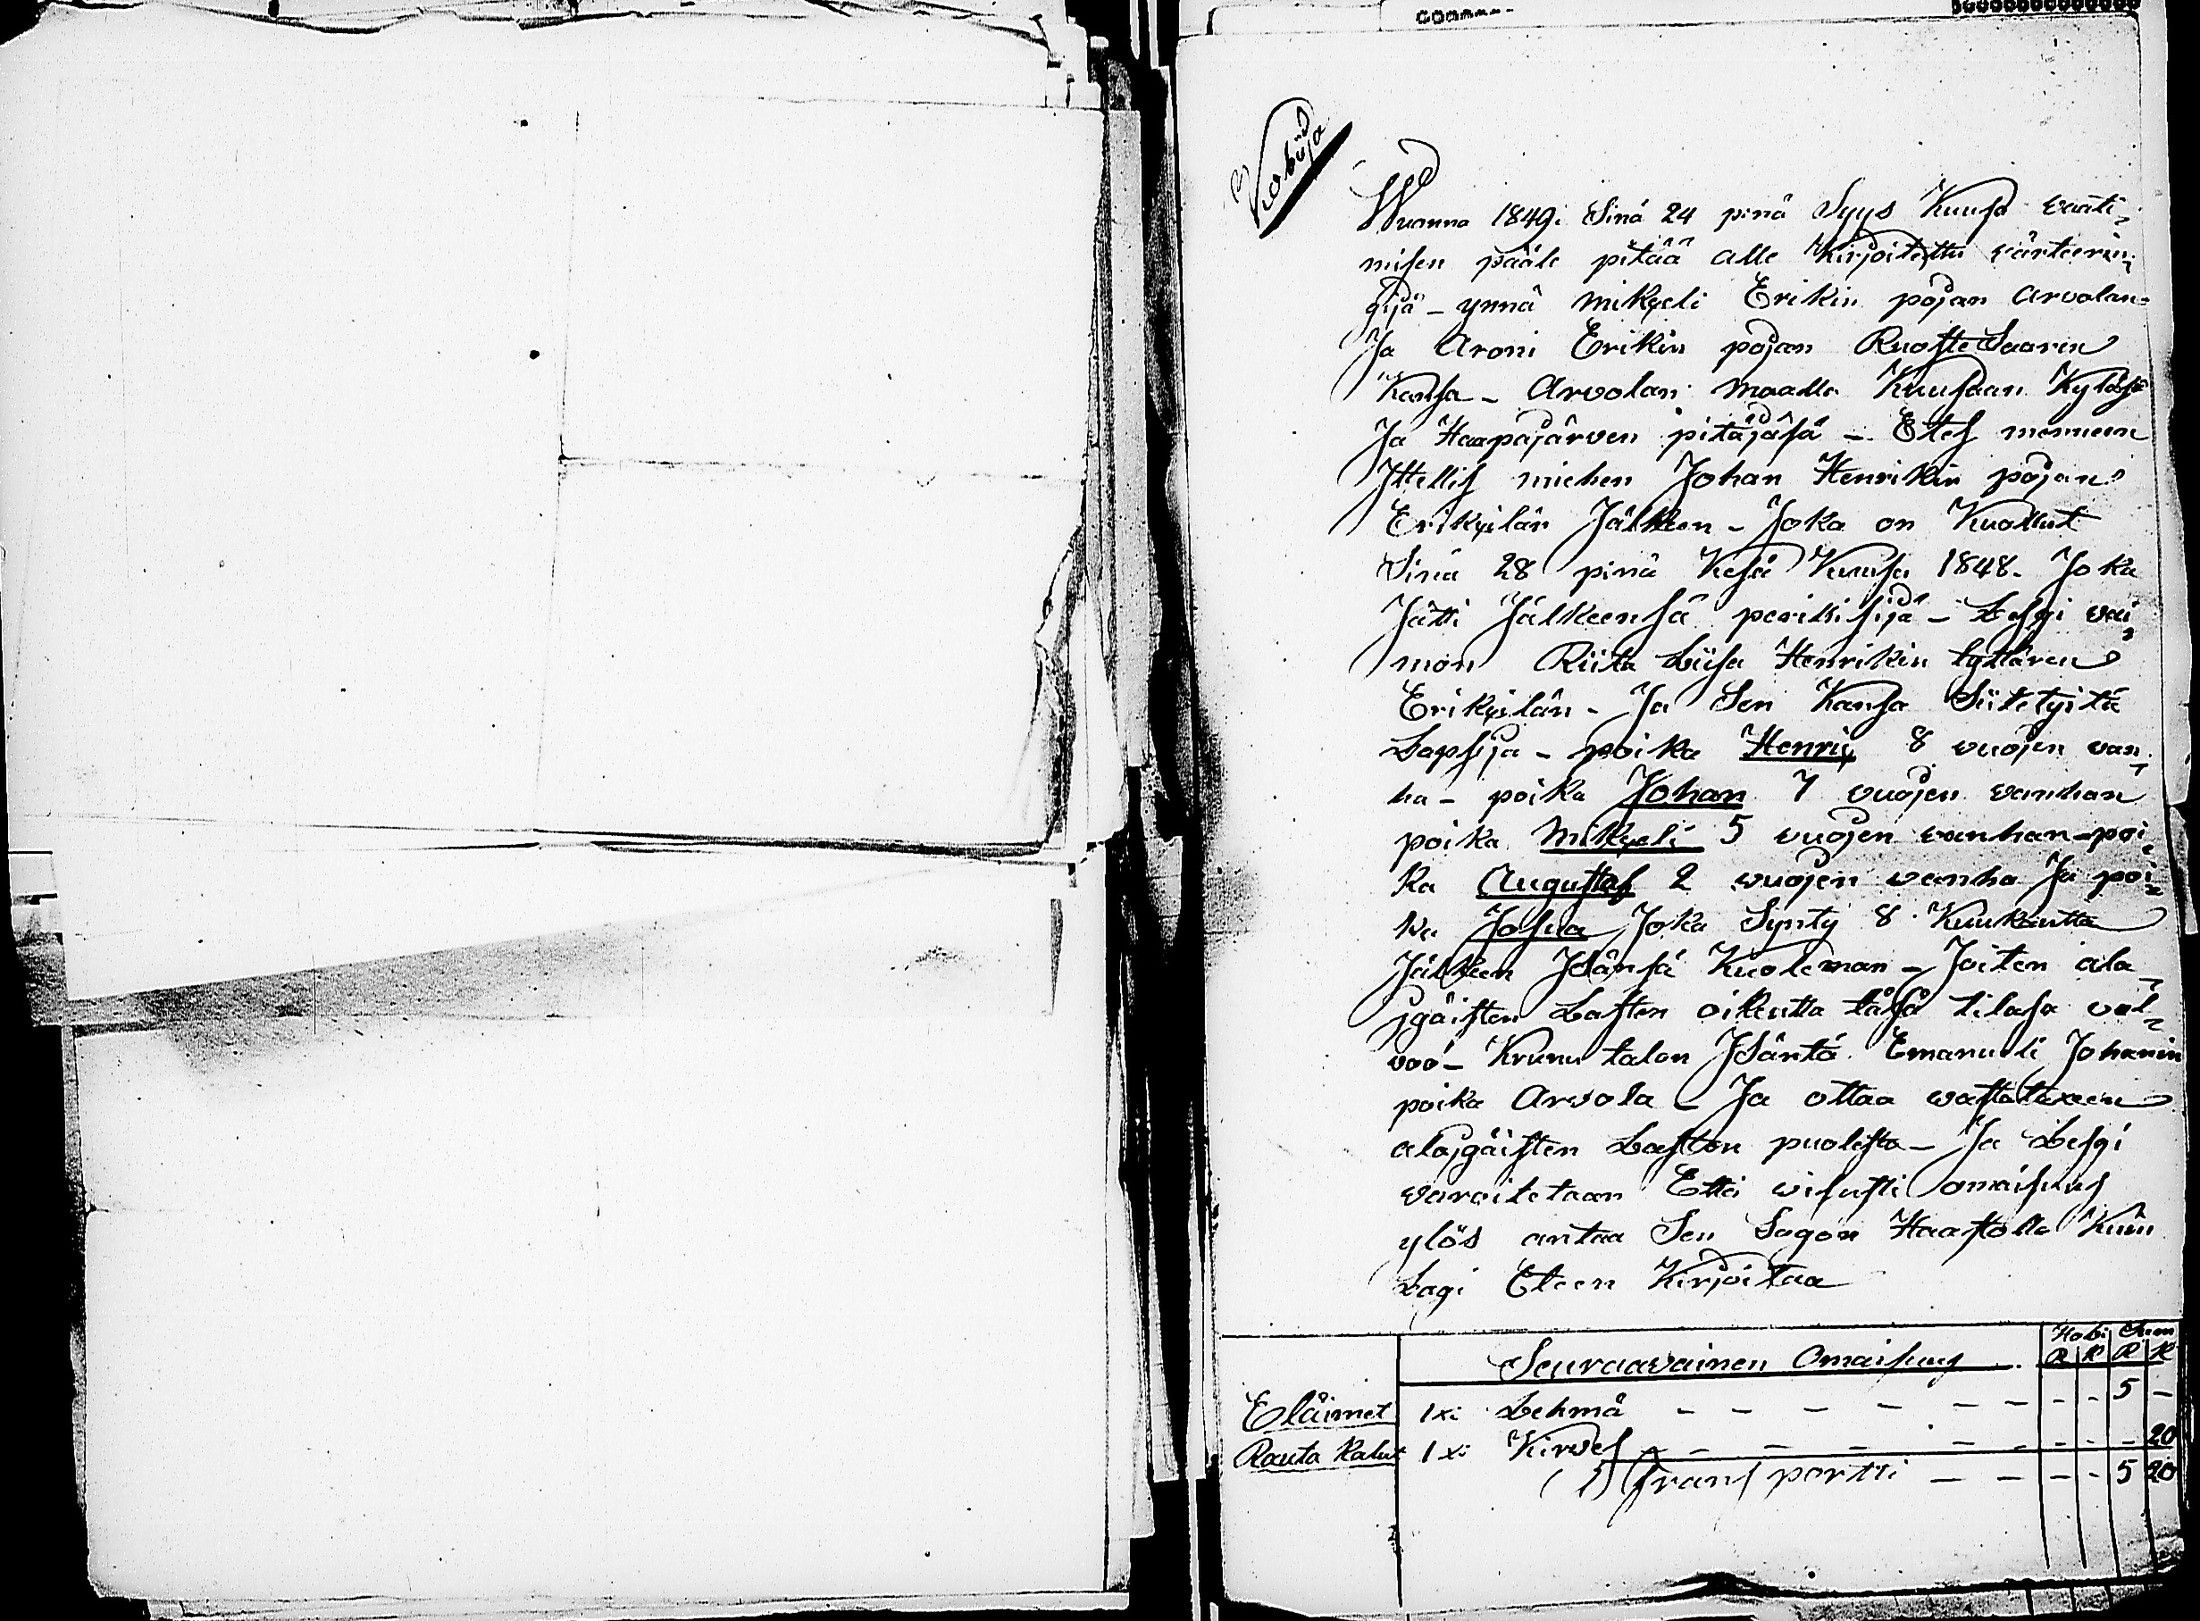 Kobija
Wuonna 1849. Sinä 24 pnä Syys Kuusa vaati-
misen pääle pitää alle Kirjoitettu värteerin-
gijä - ynnä mikxeli Erikin pojan arvolan-
Ja Aroni Erikin pojan RuosteSaaren
Kansa - Arvolan maalla Kuusaan Kyläsä
Ja Haapajärven pitäjäsä - Etes menneen
Ittellis miehen Johan Henrikin pojan
Erikxilän Jälkeen - Joka on Kuollut
Sinä 28 pnä Kesä Kuusa 1848. Joka
Jätti Jälkeensä perillisijä - Lesgi vai-
mon Riita Liisa Henrikin tyttären
Erikxilän - Ja Sen Kansa Siitetyitä
Lapsija - poika Henrix 8 vuojen van-
ha - poika Johan 7 vuojen vanhan
poika Mikxeli 5 vuojen vanhan - poi-
ka Augustaf 2 vuojen vanha Ja poi-
ka Josua Joka Synty 8 Kuukautta
Jälkeen Isänsä Kuoleman - Joiten ala-
jgäisten Lasten oikeutta täsä tilasa val-
voo - Kruunu talon Isäntä Emanueli Johanin
poika Arvola - Ja ottaa vastataxeen
alajgäisten Lasten puolesta - Ja Lesgi
varoitetaan Että visusti omaisuus
ylös antaa Sen Sagon Haastolla Kuin
Lagi Eteen Kirjoitaa
Seuraavainen Omaisuus Hobi Sum
R K R K
Eläimet 1xi Lehmä - - - - - - - - - 5 -
Rauta Kalut 1xi Kirves - - - - - - - - - 20
Transportti - - - - 5 20